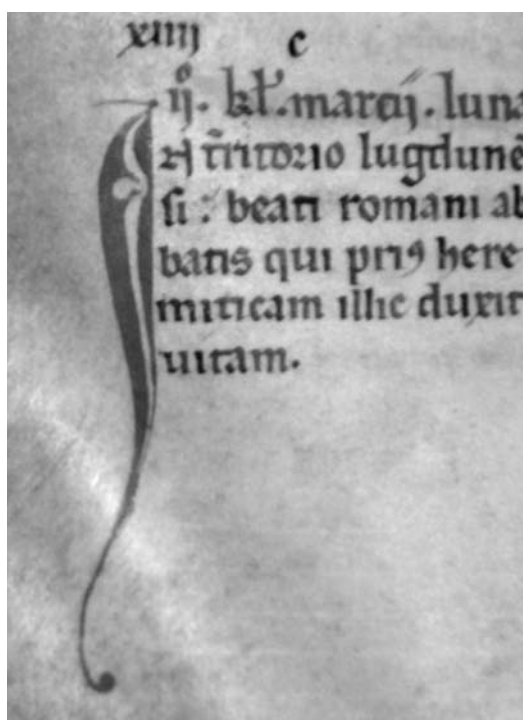 xiiij c
ij͛. kl̓. marcij. luna
In t̃ritorio lugdunẽ
si : beati romani ab
batis qui priꝰ here
miticam illic duxit
uitam.